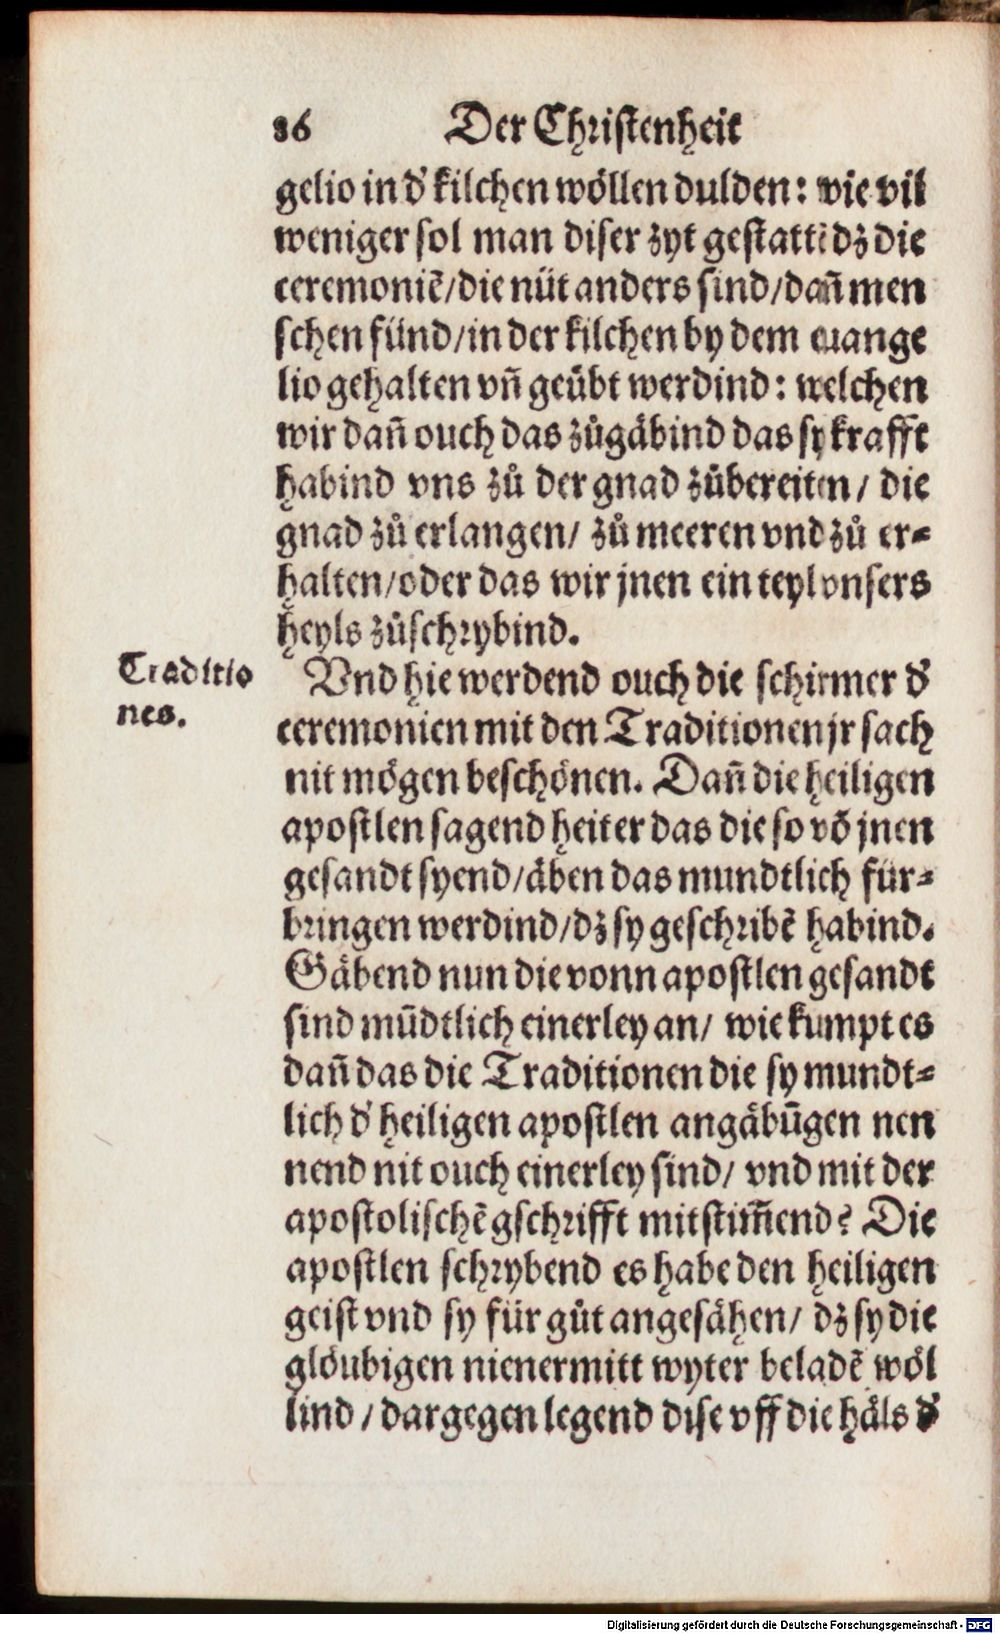 86 Der Christenheit
gelio in d' kilchen wöllen dulden: wie vil
weniger sol man diser zyt gestattẽ dz die
ceremoniẽ/die nüt anders sind/dañ men
schen fünd/in der kilchen by dem euange
lio gehalten vñ geübt werdind: welchen
wir dañ ouch das zůgäbind das sy krafft
habind vns zů der gnad zůbereiten/ die
gnad zů erlangen/ zů meeren vnd zů er=
halten/oder das wir jnen ein teyl vnsers
heyls zůschrybind.
Traditio
nes.
Vnd hie werdend ouch die schirmer d'
ceremonien mit den Traditionen jr sach
nit mögen beschönen. Dañ die heiligen
apostlen sagend heiter das die so võ jnen
gesandt syend/äben das mundtlich für=
bringen werdind/dz sy geschribẽ habind.
Gäbend nun die vonn apostlen gesandt
sind mũdtlich einerley an/ wie kumpt es
dañ das die Traditionen die sy mundt=
lich d' heiligen apostlen angäbũgen nen
nend nit ouch einerley sind/ vnd mit der
apostolischẽ gschrifft mitstim̃end? Die
apostlen schrybend es habe den heiligen
geist vnd sy für gůt angesähen/ dz sy die
glöubigen nienermitt wyter beladẽ wöl
lind / dargegen legend dise vff die häls d'
Digitalisierung gefördert durch die Deutsche Forschungsgemeinschaft - DFG